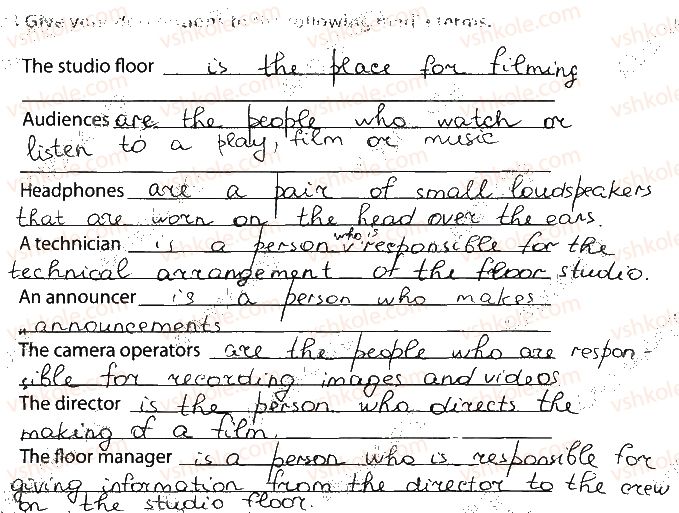 Give your
The studio floor is the place for filming
Audiences are the people who watch or
listen to a play, film or music
Headphones are a pair of small loudspeakers
that are worn on the head over the ears.
A technician is a person who is v responsible for the
technical arrangement of the floor studio.
An announcer is a person who makes
announcements
The camera operators are the people who are respon-
sible for recording images and videos
The director is the person who directs the
making of a film.
The floor manager is a person who is responsible for
giving information from the director to the crew
on the studio floor.